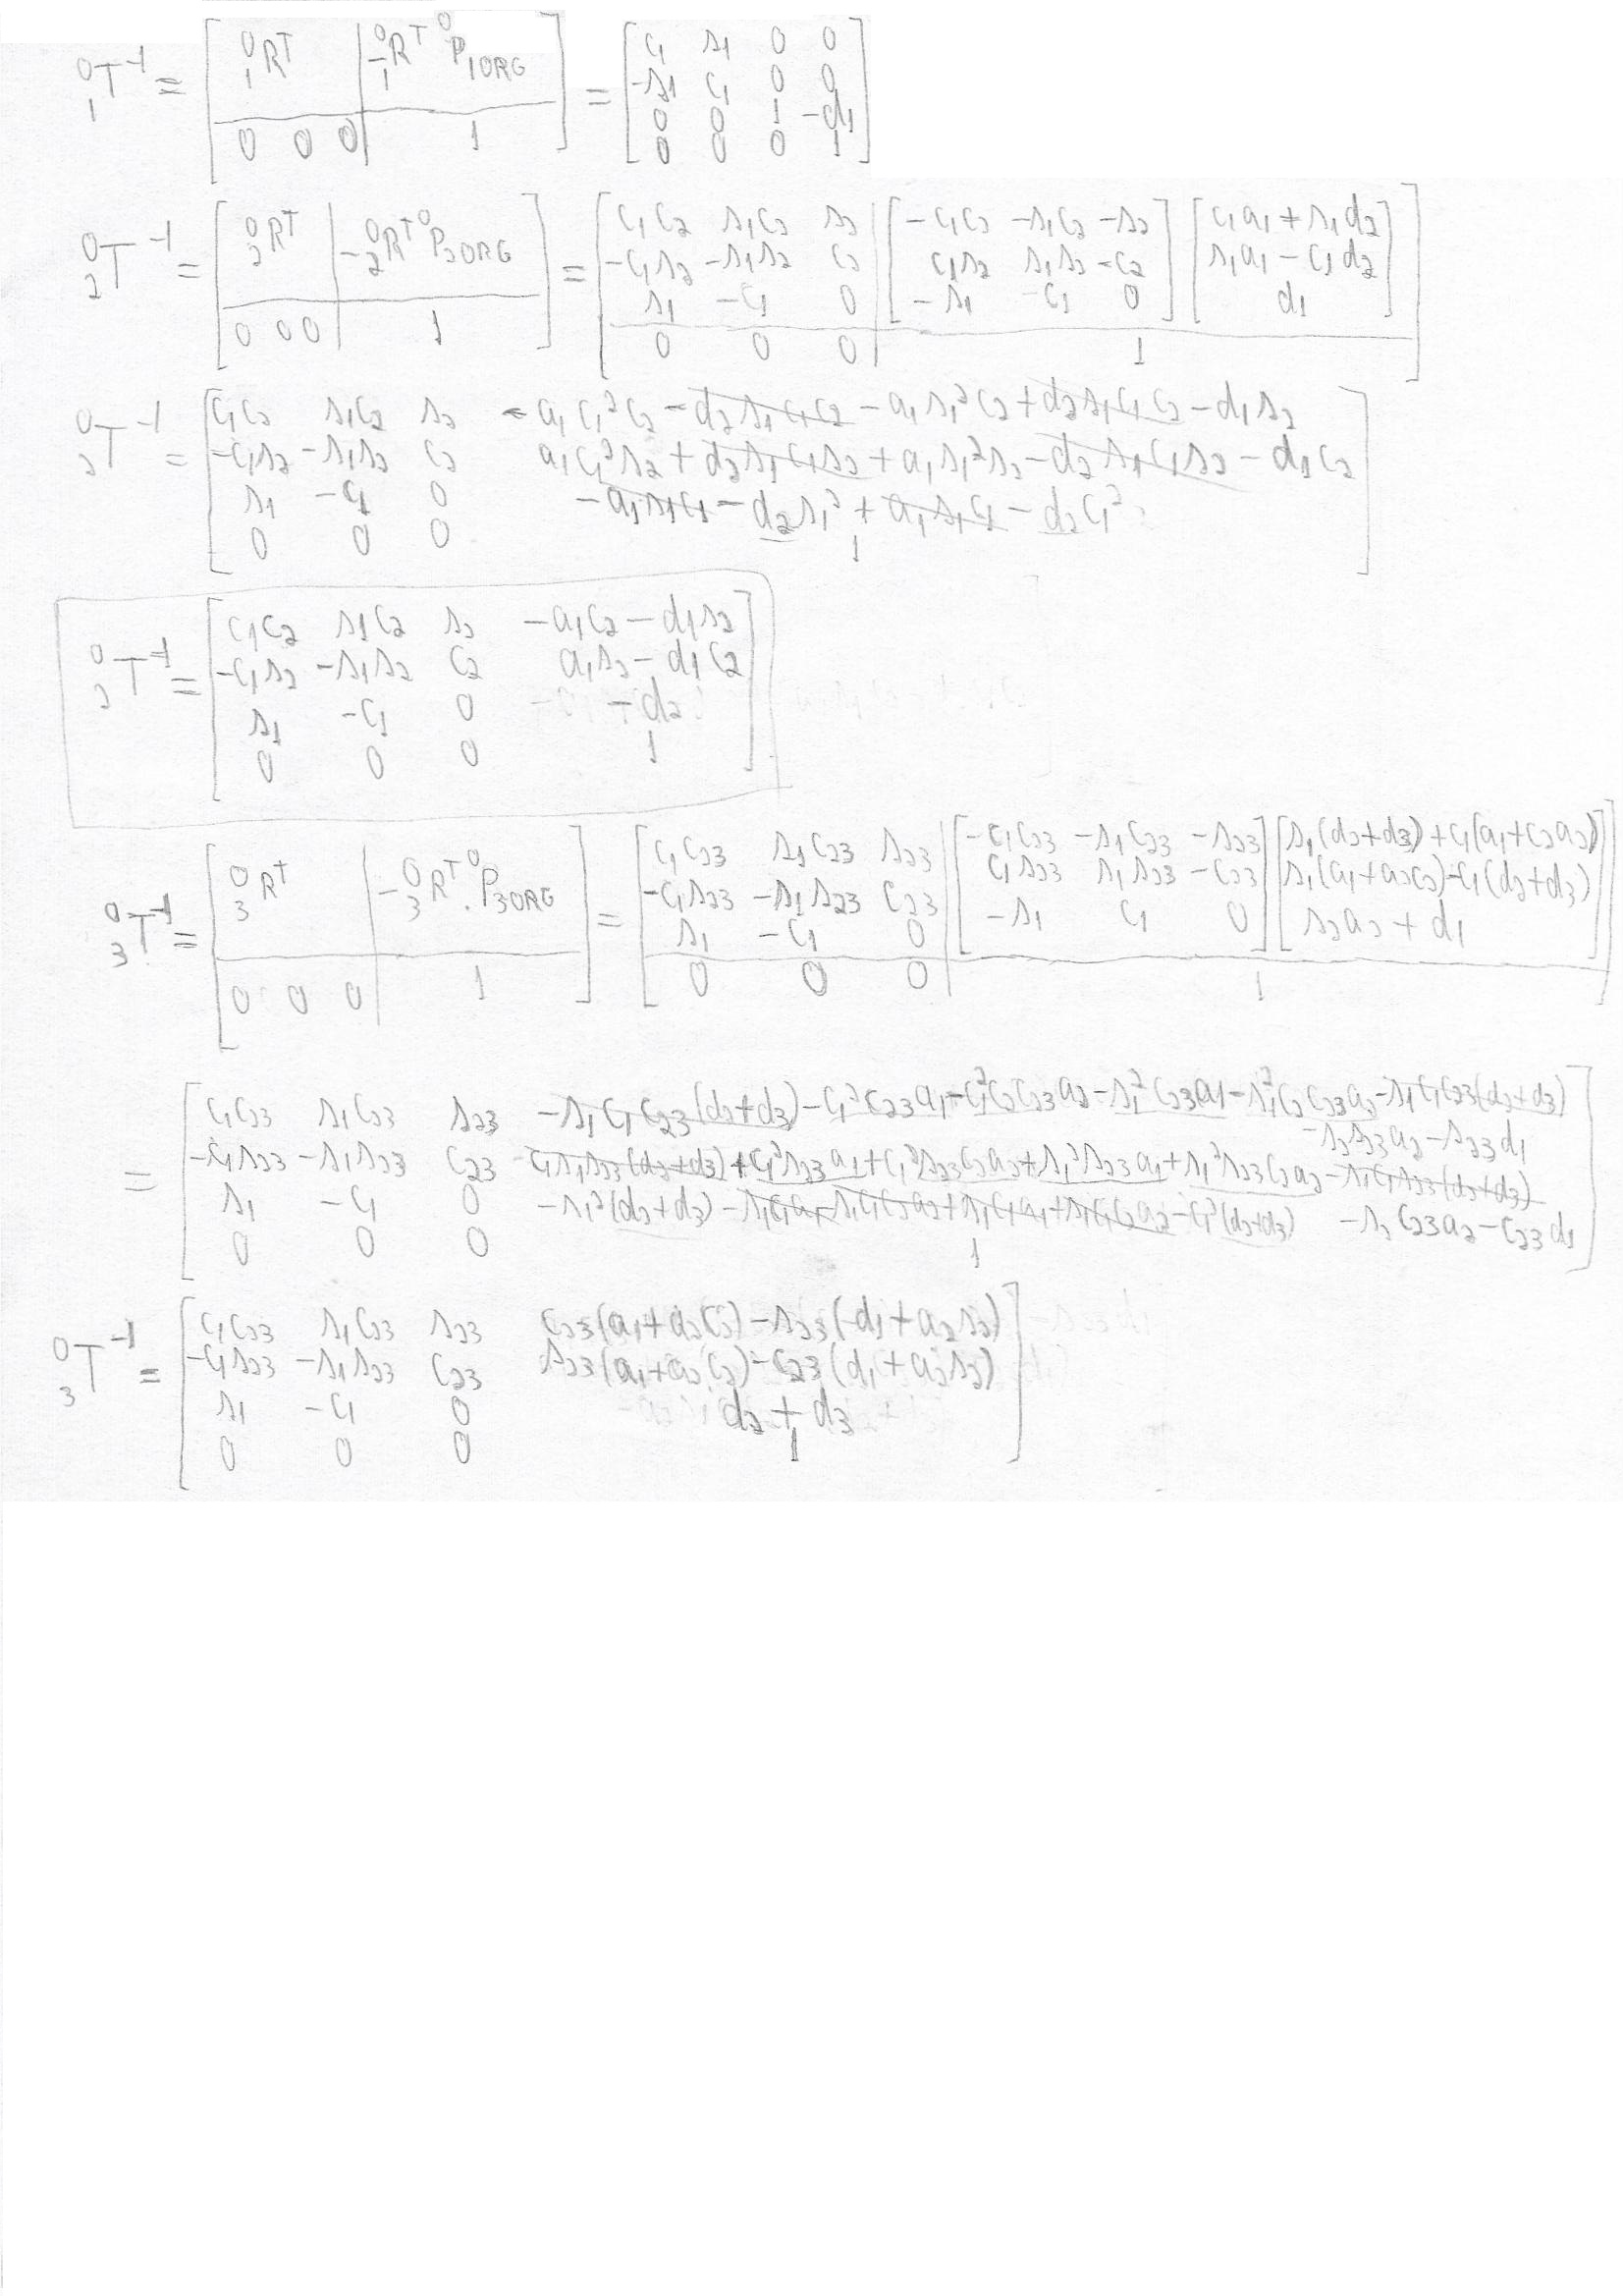 ⁰₁T⁻¹ = [ ⁰₁Rᵀ | -⁰₁Rᵀ ⁰P₁ORG ; 0 0 0 | 1 ] = [ c₁ s₁ 0 0 ; -s₁ c₁ 0 0 ; 0 0 1 -d₁ ; 0 0 0 1 ]
⁰₂T⁻¹ = [ ⁰₂Rᵀ | -⁰₂Rᵀ ⁰P₂ORG ; 0 0 0 | 1 ] = [ c₁c₂ s₁c₂ s₂ ; -c₁s₂ -s₁s₂ c₂ ; s₁ -c₁ 0 ; 0 0 0 | [ -c₁c₂ -s₁c₂ -s₂ ; c₁s₂ s₁s₂ -c₂ ; -s₁ c₁ 0 ] [ c₁a₁ + s₁d₂ ; s₁a₁ - c₁d₂ ; d₁ ] ; 1 ]
⁰₂T⁻¹ = [ c₁c₂ s₁c₂ s₂ -a₁c₁²c₂ - d₂s₁c₁c₂ - a₁s₁²c₂ + d₂s₁c₁c₂ - d₁s₂
-c₁s₂ -s₁s₂ c₂ a₁c₁²s₂ + d₂s₁c₁s₂ + a₁s₁²s₂ - d₂s₁c₁s₂ - d₁c₂
s₁ -c₁ 0 -a₁s₁c₁ - d₂s₁² + a₁s₁c₁ - d₂c₁²
0 0 0 1 ]
⁰₂T⁻¹ = [ c₁c₂ s₁c₂ s₂ -a₁c₂ - d₁s₂
-c₁s₂ -s₁s₂ c₂ a₁s₂ - d₁c₂
s₁ -c₁ 0 -d₂
0 0 0 1 ]
⁰₃T⁻¹ = [ ⁰₃Rᵀ | -⁰₃Rᵀ ⁰P₃ORG ; 0 0 0 | 1 ] = [ c₁c₂₃ s₁c₂₃ s₂₃ ; -c₁s₂₃ -s₁s₂₃ c₂₃ ; s₁ -c₁ 0 ; 0 0 0 | [ -c₁c₂₃ -s₁c₂₃ -s₂₃ ; c₁s₂₃ s₁s₂₃ -c₂₃ ; -s₁ c₁ 0 ] [ s₁(d₂+d₃) + c₁(a₁+c₂a₂) ; s₁(a₁+a₂c₂) - c₁(d₂+d₃) ; s₂a₂ + d₁ ] ; 1 ]
= [ c₁c₂₃ s₁c₂₃ s₂₃ -s₁c₁c₂₃(d₂+d₃) - c₁²c₂₃a₁ - c₁²c₂c₂₃a₂ - s₁²c₂₃a₁ - s₁²c₂c₂₃a₂ - s₁c₁c₂₃(d₂+d₃)
-s₂s₂₃a₂ - s₂₃d₁
-c₁s₂₃ -s₁s₂₃ c₂₃ c₁s₁s₂₃(d₂+d₃) + c₁²s₂₃a₁ + c₁²s₂₃c₂a₂ + s₁²s₂₃a₁ + s₁²s₂₃c₂a₂ - s₁c₁s₂₃(d₂+d₃)
s₁ -c₁ 0 -s₁²(d₂+d₃) - s₁c₁a₁ - s₁c₁c₂a₂ + s₁c₁a₁ + s₁c₁c₂a₂ - c₁²(d₂+d₃) -s₂c₂₃a₂ - c₂₃d₁
0 0 0 1 ]
⁰₃T⁻¹ = [ c₁c₂₃ s₁c₂₃ s₂₃ c₂₃(a₁+a₂c₂) - s₂₃(d₁+a₂s₂)
-c₁s₂₃ -s₁s₂₃ c₂₃ s₂₃(a₁+a₂c₂) - c₂₃(d₁+a₂s₂)
s₁ -c₁ 0 d₂ + d₃
0 0 0 1 ]